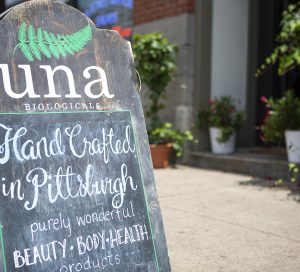 una
BIOLOGICALS
Hand Crafted
in Pittsburgh
purely wonderful
BEAUTY • BODY • HEALTH
products